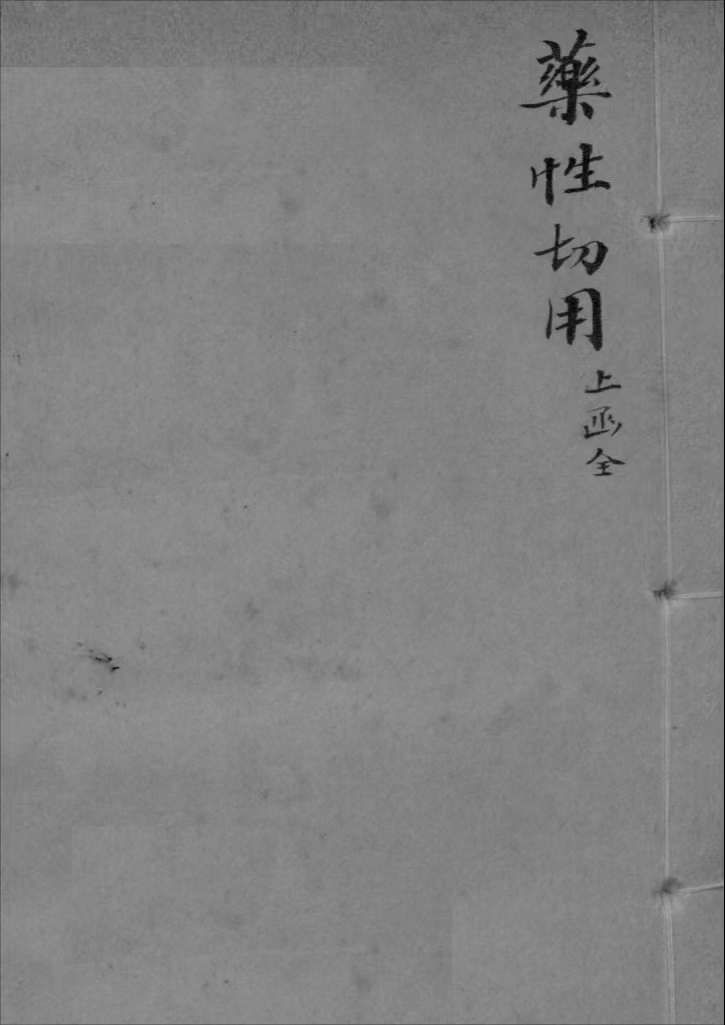 藥性切用
上函全